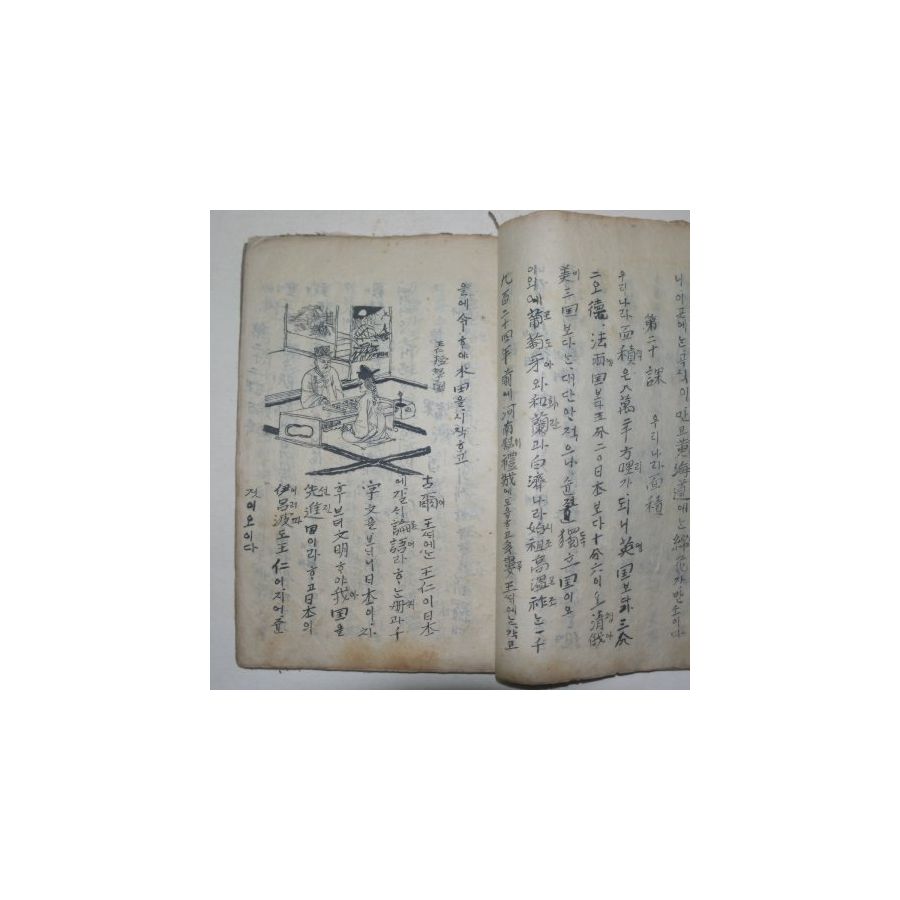 니 이곳에는 곡식이 만고 黄海道에는 綿花가 만소이다
第二十課 우리나라 面積
우리나라 面積은 八萬 方哩가 되니 英国보다 三分
二오 德、法 兩国보다 분 二〇 日本보다 十分 六이오 清俄
美三国보다는 대단 적으나 獨立国이오
이와 에 葡萄牙와 和蘭과 白濟나라 始祖高温祚는 一千
九百二十四年前에 河南 禮城에 도읍하고 多婁王 에는 각고
을에 令하야 水田을 시작하고
古爾王 에는 王仁이 日本
에 갈 論語라 하는 册과 千
字文을 보니 日本이
후부터 文明하야 我国을
先進国이라 하고 日本의
伊呂波도 王仁이 지어준
것이오이다